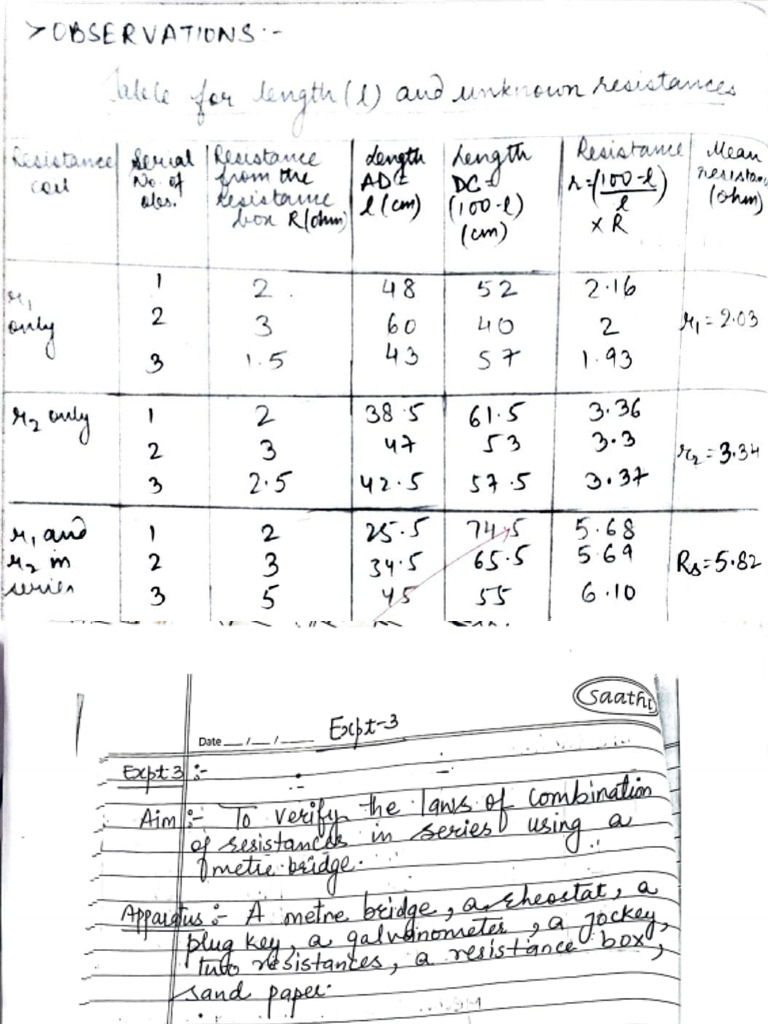 > OBSERVATIONS :-
Table for length (l) and unknown resistances
Resistance coil | Serial No. of obs. | Resistance from the resistance box R (ohm) | Length AD = l (cm) | Length DC = (100-l) (cm) | Resistance r = (100-l)/l × R | Mean resistance (ohm)
r₁ only | 1 | 2 | 48 | 52 | 2.16 | r₁ = 2.03
2 | 3 | 60 | 40 | 2
3 | 1.5 | 43 | 57 | 1.93
r₂ only | 1 | 2 | 38.5 | 61.5 | 3.36 | r₂ = 3.34
2 | 3 | 47 | 53 | 3.3
3 | 2.5 | 42.5 | 57.5 | 3.37
r₁ and r₂ in series | 1 | 2 | 25.5 | 74.5 | 5.68 | Rs = 5.82
2 | 3 | 34.5 | 65.5 | 5.69
3 | 5 | 45 | 55 | 6.10
Saathi
Date __/__/__ Expt-3
Expt 3 :-
Aim :- To verify the laws of combination
of resistances in series using a
metre bridge.
Apparatus :- A metre bridge, a rheostat, a
plug key, a galvanometer, a jockey,
two resistances, a resistance box,
sand paper.